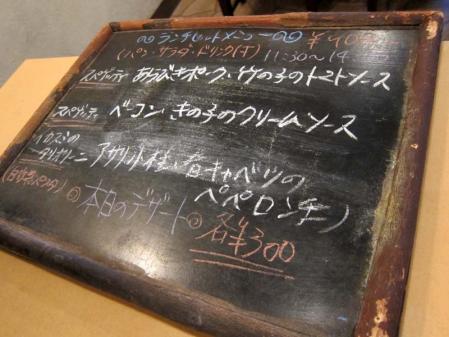 ランチセットメニュー ¥
(パン・サラダ・ドリンク付) 11:30~14
スパゲッティ あらびきポーク・竹の子のトマトソース
スパゲッティ ベーコン・きの子のクリームソース
アサリ 春キャベツの
(自家製パスタ) ペペロンチーノ
本日のデザート 各¥300